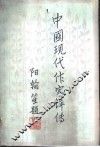 中國現代作家評传
阳翰笙題